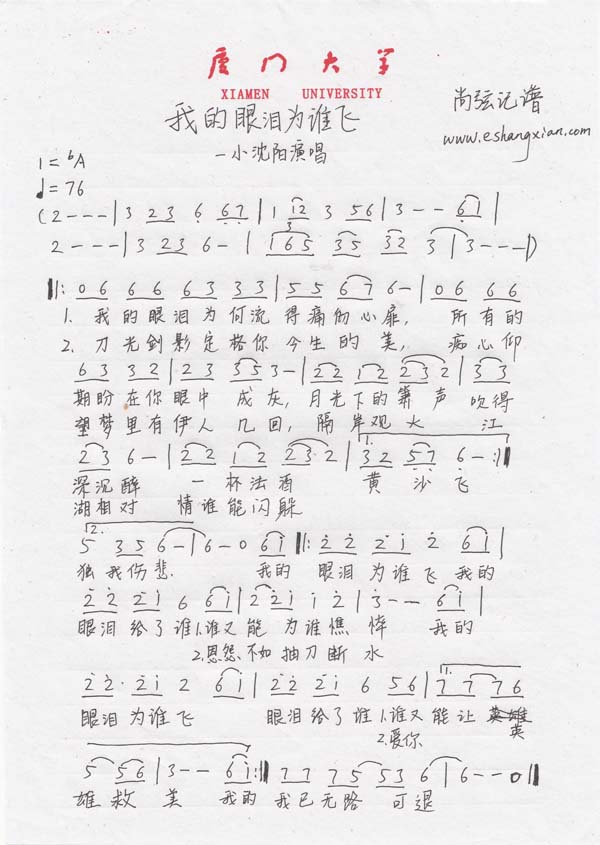 厦门大学
XIAMEN UNIVERSITY
尚弦记谱
我的眼泪为谁飞
www.eshangxian.com
—小沈阳演唱
1=bA
♩=76
(2--- | 3 23 6 67 | 1 12 3 56 | 3-- 61 |
2--- | 3 23 6- | 165 35 32 3 | 3---)
||: 06 66 63 33 | 55 676- | 06 66
1. 我的眼泪为何流得痛彻心扉, 所有的
2. 刀光剑影定格你今生的美, 痴心仰
63 32 | 23 353- | 22 12 232 | 33
期盼在你眼中成灰,月光下的箫声吹得
望梦里有伊人几回,隔岸观火 江
23 6- | 22 12 2 23·2 | 1. 32 57 6- :||
深沉醉 一杯浊酒 黄沙飞
湖相对 情谁能闪躲
2.
5 356- | 6-0 61 ||: 22 21 2 61 |
独我伤悲. 我的眼泪为谁飞我的
22 21 6 61 | 221 12 | 3-- 61 |
眼泪给了谁1.谁又能为谁憔悴 我的
2.恩怨不如抽刀断水
22· 21 2 61 | 22 21 6 56 | 1. 77 76
眼泪为谁飞 眼泪给了谁1.谁又能让英
2.爱你
5 56 | 3-- 61 :|| 77 75 53 6 | 6--0 ||
雄救美 我的我已无路可退